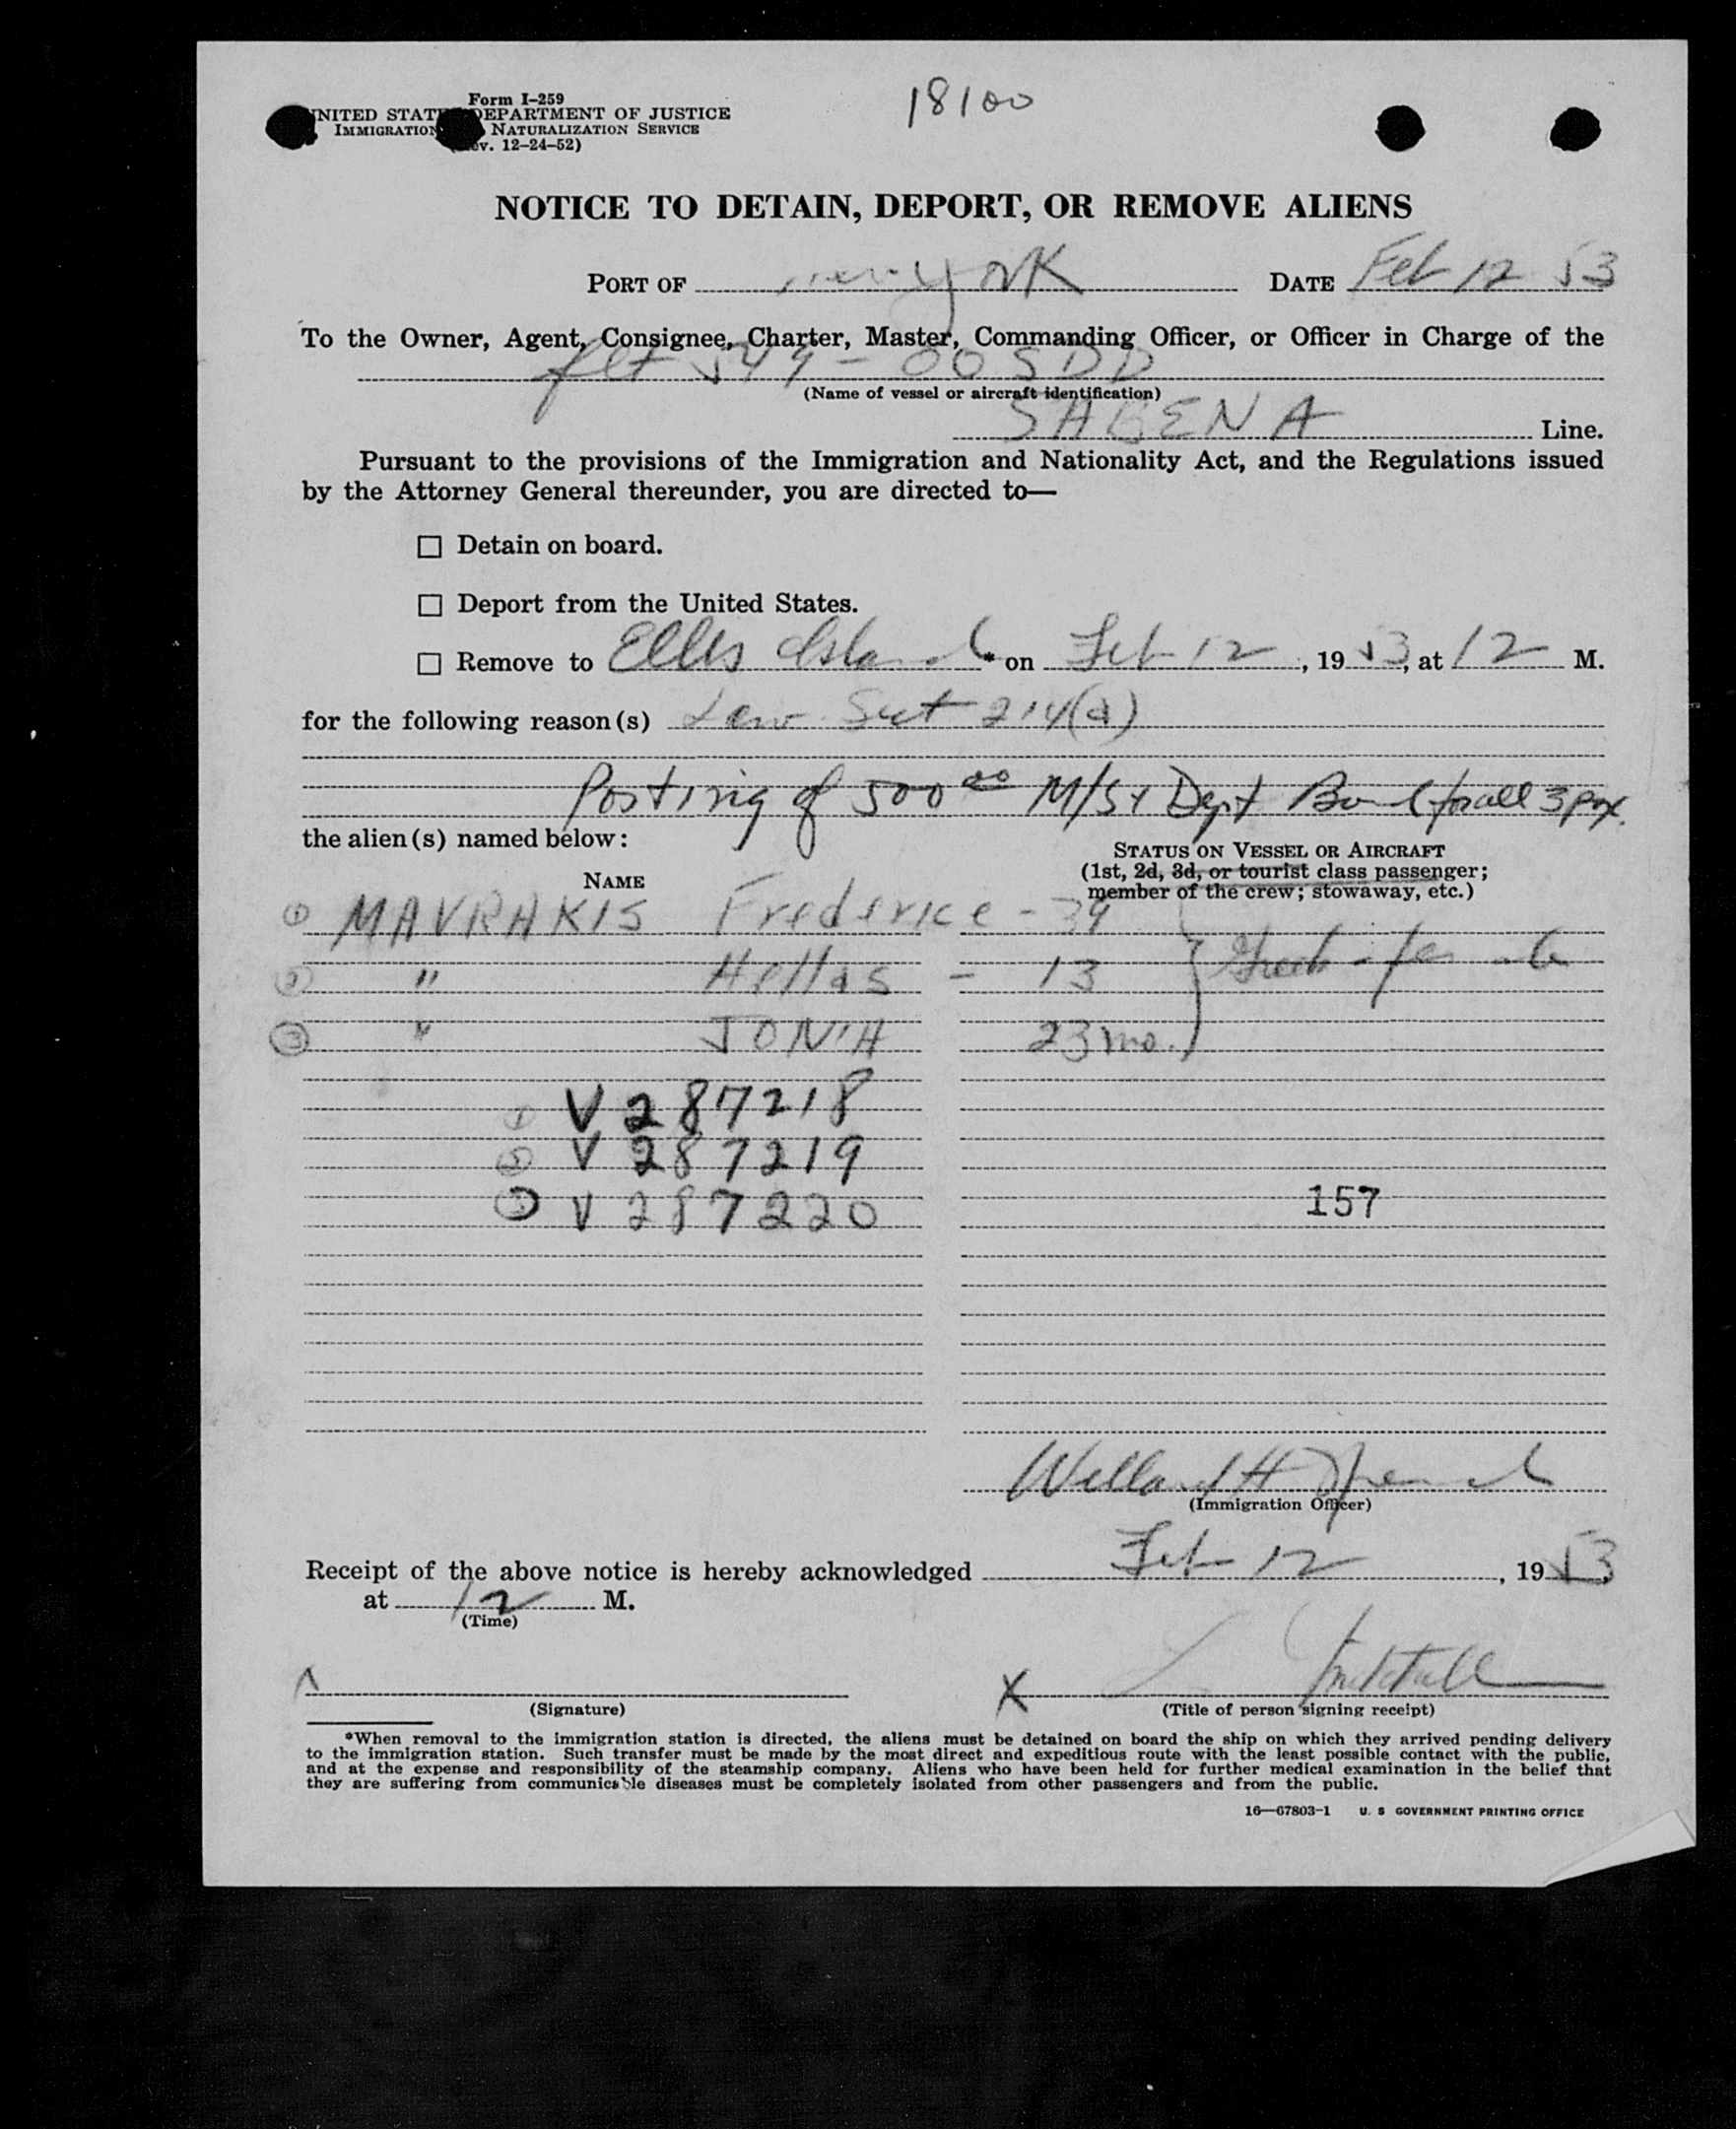 Form I-259
18100
UNITED STATES DEPARTMENT OF JUSTICE
IMMIGRATION NATURALIZATION SERVICE
(Rev. 12-24-52)
NOTICE TO DETAIN, DEPORT, OR REMOVE ALIENS
PORT OF New York DATE Feb 12 53
To the Owner, Agent, Consignee, Charter, Master, Commanding Officer, or Officer in Charge of the
flt 549 - OO SDD
(Name of vessel or aircraft identification)
SABENA Line.
Pursuant to the provisions of the Immigration and Nationality Act, and the Regulations issued
by the Attorney General thereunder, you are directed to—
☐ Detain on board.
☐ Deport from the United States.
☐ Remove to Ellis Island * on Feb 12, 19 53, at 12 M.
for the following reason(s) Sect 214(a)
Posting of 500 00 M/S & Dept Bond for all 3 pax.
the alien(s) named below:
STATUS ON VESSEL OR AIRCRAFT
(1st, 2d, 3d, or tourist class passenger;
member of the crew; stowaway, etc.)
NAME
① MAVRAKIS Frederice - 39
② " Hellas - 13 Greek - female
③ " JONIA 23 mo.
① V 287218
② V 287219
③ V 287220
157
Willard H
(Immigration Officer)
Receipt of the above notice is hereby acknowledged Feb 12, 19 53,
at 12 M.
(Time)
X
(Signature) (Title of person signing receipt)
*When removal to the immigration station is directed, the aliens must be detained on board the ship on which they arrived pending delivery
to the immigration station. Such transfer must be made by the most direct and expeditious route with the least possible contact with the public,
and at the expense and responsibility of the steamship company. Aliens who have been held for further medical examination in the belief that
they are suffering from communicable diseases must be completely isolated from other passengers and from the public.
16—67803-1 U. S GOVERNMENT PRINTING OFFICE